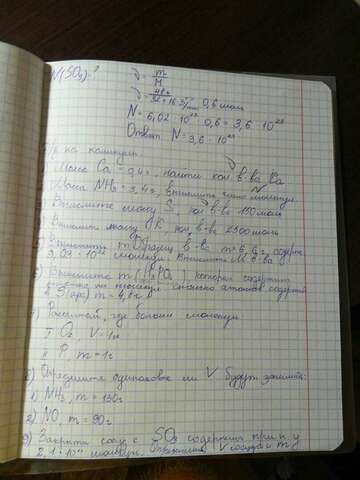 N(SO₃)-?
ν = m/M
ν = 48г/32+16·3 г/моль 0,6 моль
N = 6,02 · 10²³ · 0,6 = 3,6 · 10²³
Ответ N = 3,6 · 10²³
Д/р на
Масса Ca = 0,4г, найти кол в-ва Ca
Масса NH₃ = 3,4г, вычислите число молекул.
Вычислите массу S, кол в-ва 150 моль
Вычислить массу K, кол в-ва 2500 моль
m образец в-ва m=6,6г, содерж
9,03 · 10²² молекул. Вычислить M в-ва
Вычислите m (H₃PO₄), которая содержит
молекул сколько атомов содерж
m = 4,8г
Рассчитай, где больше молекул
I O₂, V = 1л
II P, m = 1г
8) Определите одинаковые ли V будут занимать:
1) NH₃, m = 130г
2) NO, m = 90г
9) Закрытый сосуд с SO₂ содержит при н.у
2,1 · молекул. V сосуда и m